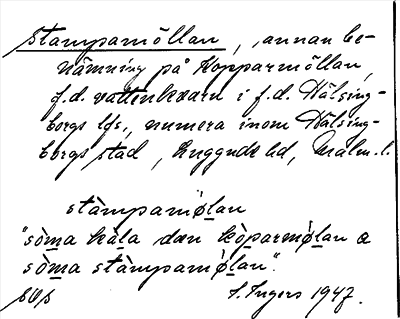 Stampamöllan, annan be-
nämning på Kopparmöllan,
f.d. vattenkvarn i f.d. Hälsing-
borgs lfs., numera inom Hälsing-
borgs stad, Luggude hd, Malm. l.
stàmpamølan
"sòma kàla dæn kòparmølan a
sòma stàmpamølan".
S. Ingers 1947.